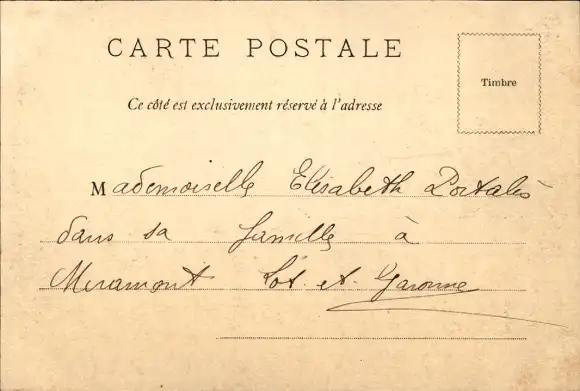 CARTE POSTALE
Timbre
Ce côté est exclusivement réservé à l'adresse
Mademoiselle Elisabeth Portalès
dans sa famille à
Miramont Lot-et-Garonne